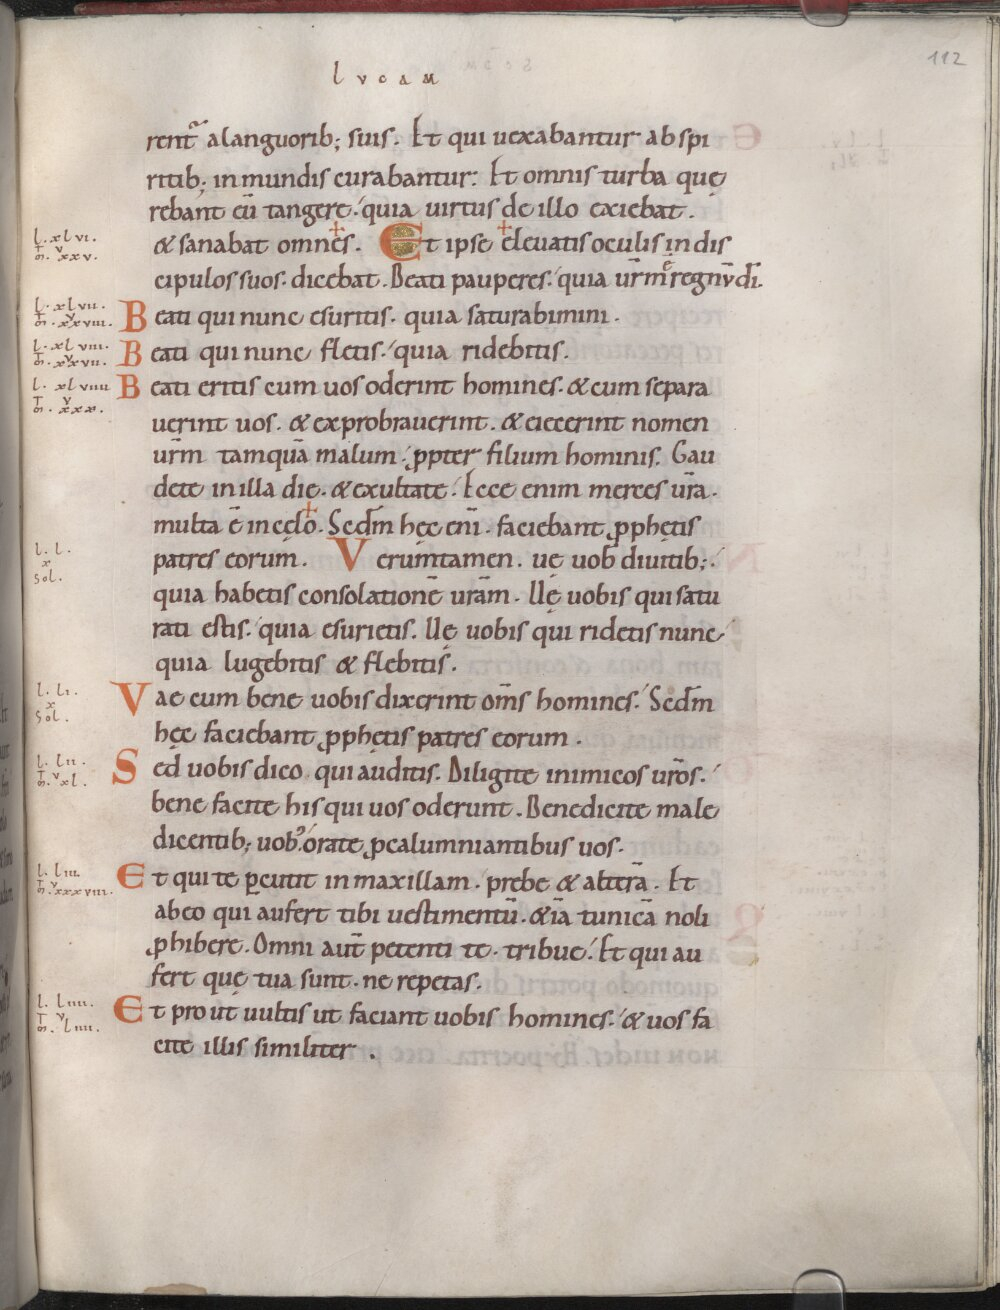 lvcam
112
rent᷑ alanguorib; suis. Et qui uexabantur abspi
ritib; inmundis curabantur: Et omnis turba quę
rebant eū tangere. quia uirtus de illo exiebat.
l. xlvi.
& sanabat omnes. Et ipse eleuatis oculis in dis
m. xxv.
cipulos suos. dicebat. Beati pauperes. quia ur̄m ē regnv̄ dī.
l. xlvii.
Beati qui nunc esuritis. quia saturabimini.
m. xxviii.
l. xlviii.
Beati qui nunc fletis. quia ridebitis.
m. xxvii.
l. xlviiii
Beati eritis cum uos oderint homines. & cum separa
m. xxx.
uerint uos. & exprobrauerint. & eiecerint nomen
ur̄m tamquā malum. ꝓpter filium hominis. Gau
dete in illa die. & exultate. Ecce enim merces ur̄a.
multa ē in cęlo. Scdm̄ hęc eni. faciebant ꝓphetis
l. l.
patres eorum. Verumtamen. uę uob diuitib;.
x
sol.
quia habetis consolationē ur̄am. Uę uobis qui satu
rati estis. quia esurietis. Uę uobis qui ridetis nunc
quia lugebitis & flebitis.
l. li.
Vae cum bene uobis dixerint om̄s homines. Scdm̄
x
sol.
hęc faciebant ꝓphetis patres eorum.
l. lii.
Sed uobis dico qui auditis. Diligite inimicos ur̄os.
m. xl.
bene facite his qui uos oderunt. Benedicite male
dicentib; uob. orate ꝓcalumniantibus uos.
l. liii.
Et qui te ꝑcutit in maxillam. prebe & altera᷑. Et
m. xxxviii.
ab eo qui aufert tibi uestimentū. & iā tunicā noli
ꝓhibere. Omni aut̄ petenti te. tribue. Et qui au
fert que tua sunt. ne repetas.
l. liiii.
Et prout uultis ut faciant uobis homines. & uos fa
m. liiii.
cite illis similiter.